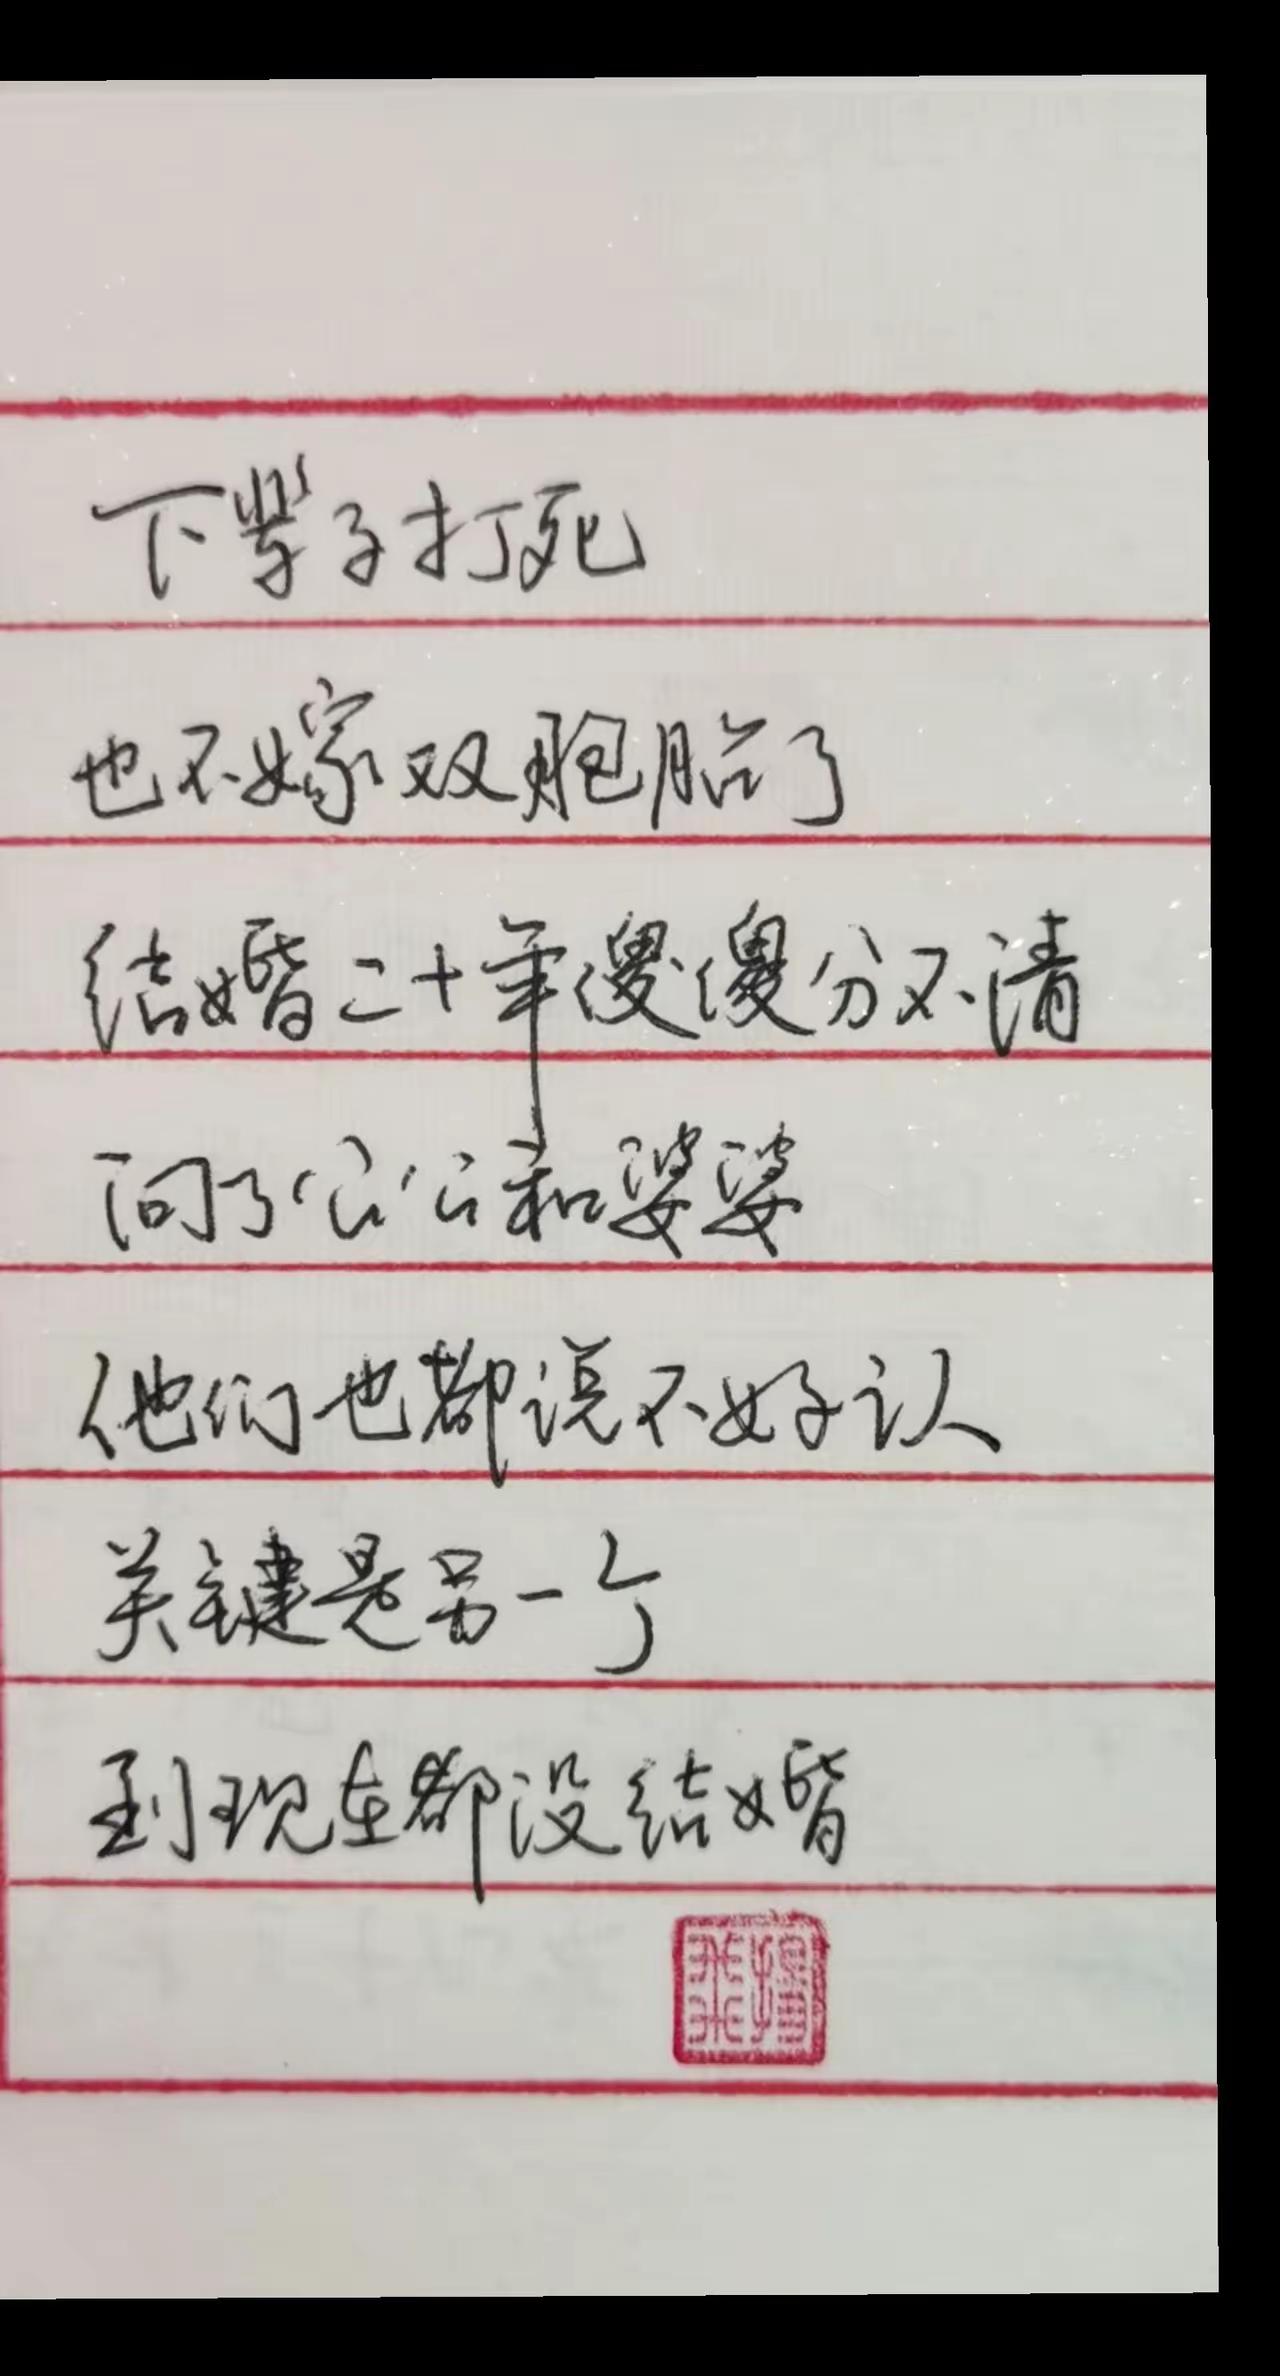 下辈子打死
也不嫁双胞胎了
结婚二十年傻傻分不清
问了公公和婆婆
他们也都说不好认
关键是另一个
到现在都没结婚